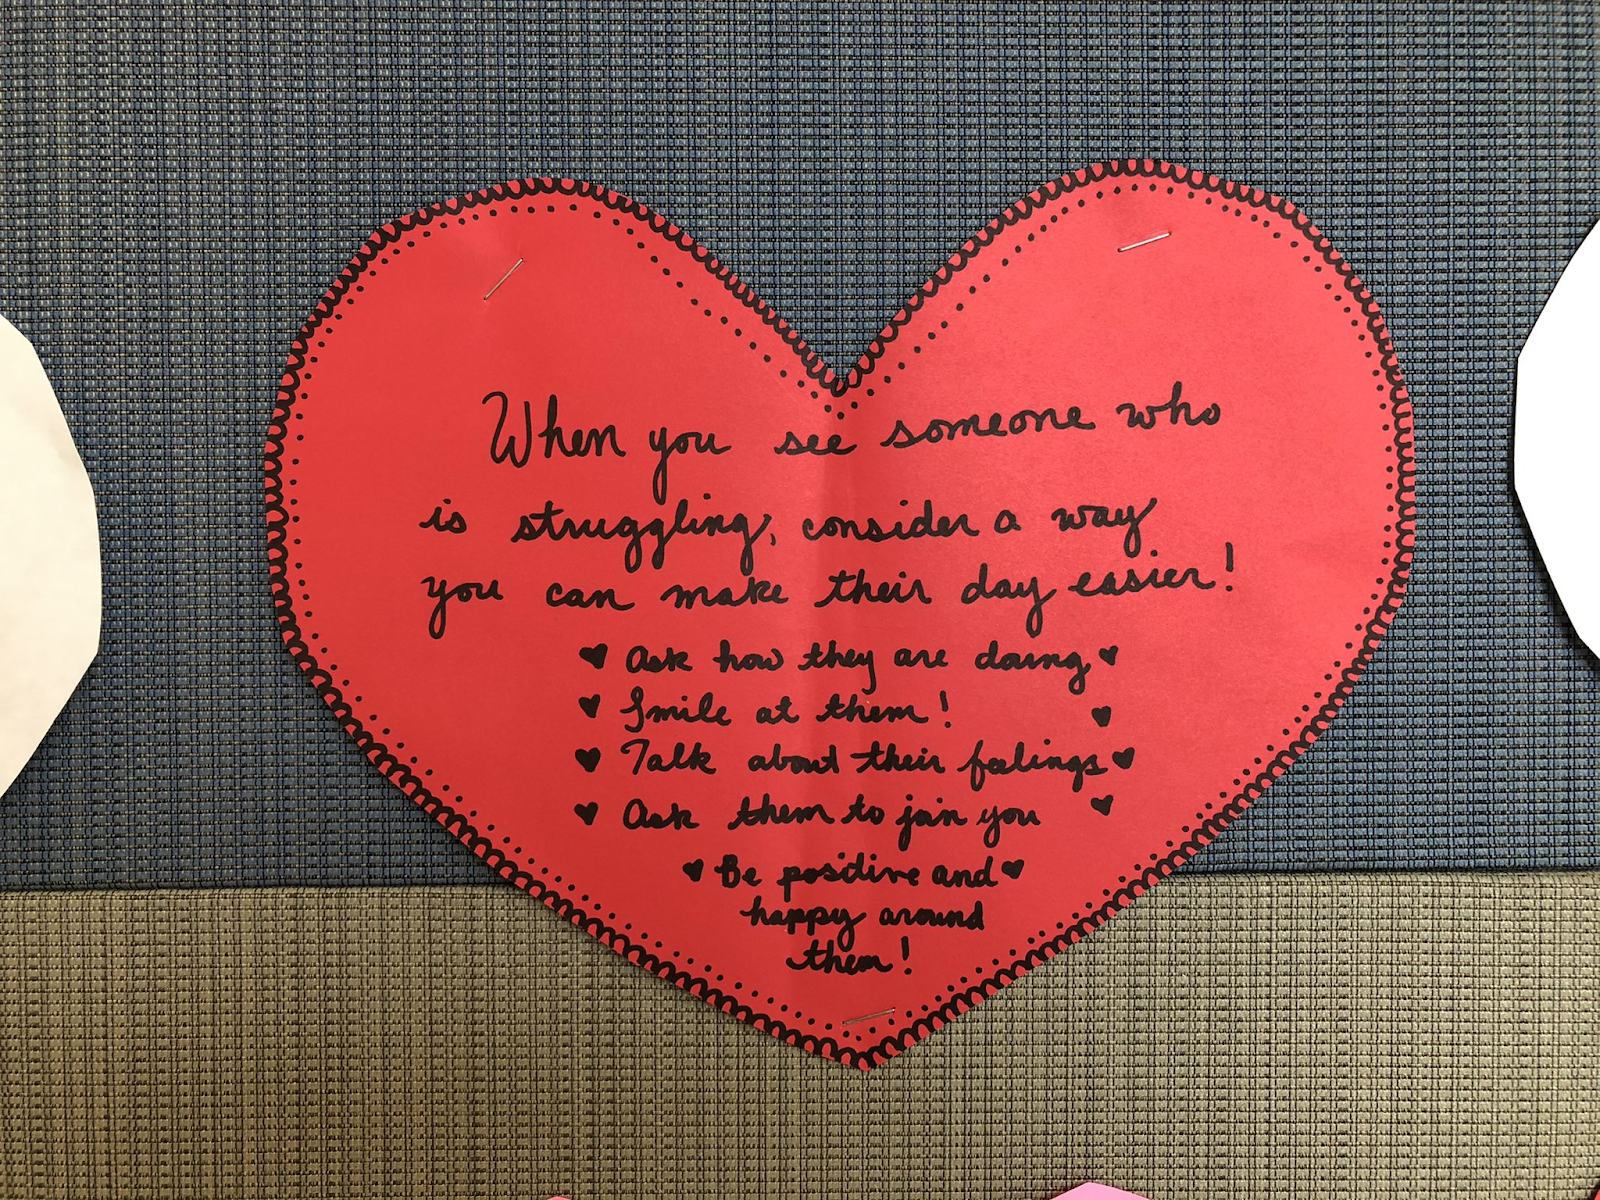 When you see someone who
is struggling, consider a way
you can make their day easier!
♥ Ask how they are doing ♥
♥ Smile at them! ♥
♥ Talk about their feelings ♥
♥ Ask them to join you ♥
♥ Be positive and ♥
happy around
them!